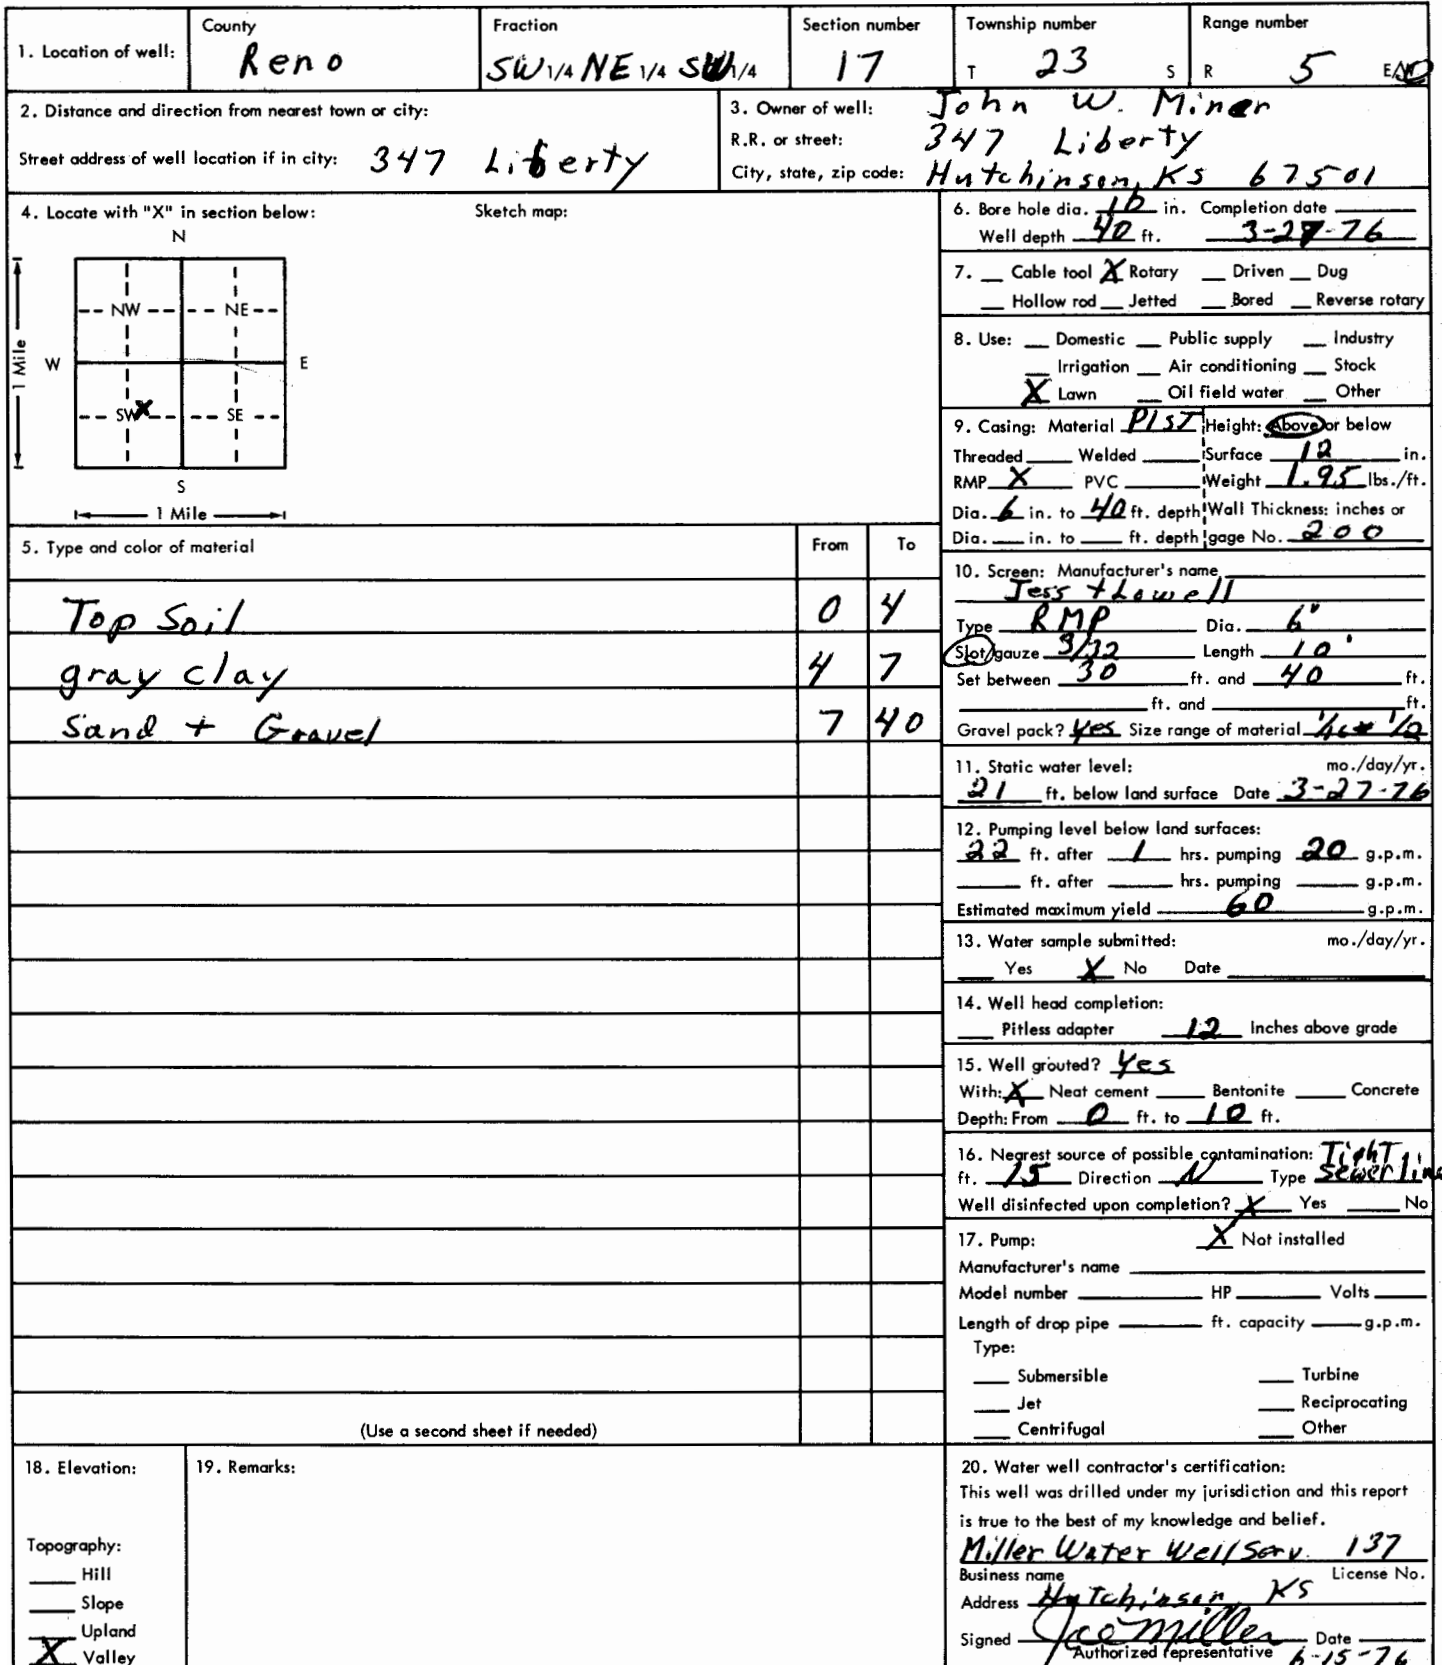 County Fraction Section number Township number Range number
1. Location of well: Reno SW 1/4 NE 1/4 SW 1/4 17 T 23 S R 5 E/W
2. Distance and direction from nearest town or city:
Street address of well location if in city: 347 Liberty
3. Owner of well: John W. Miner
R.R. or street: 347 Liberty
City, state, zip code: Hutchinson, KS 67501
4. Locate with "X" in section below: Sketch map:
N
NW NE
W E
SW X SE
S
1 Mile
1 Mile
5. Type and color of material From To
Top Soil 0 4
gray clay 4 7
Sand + Gravel 7 40
(Use a second sheet if needed)
6. Bore hole dia. 10 in. Completion date
Well depth 40 ft. 3-27-76
7. __ Cable tool X Rotary __ Driven __ Dug
__ Hollow rod __ Jetted __ Bored __ Reverse rotary
8. Use: __ Domestic __ Public supply __ Industry
__ Irrigation __ Air conditioning __ Stock
X Lawn __ Oil field water __ Other
9. Casing: Material PlST Height: Above or below
Threaded ____ Welded ____ Surface 12 in.
RMP X PVC ____ Weight 1.95 lbs./ft.
Dia. 6 in. to 40 ft. depth Wall Thickness: inches or
Dia. ___ in. to ___ ft. depth gage No. 200
10. Screen: Manufacturer's name
Jess + Lowell
Type RMP Dia. 6"
Slot/gauze 3/32 Length 10'
Set between 30 ft. and 40 ft.
____ ft. and ____ ft.
Gravel pack? Yes Size range of material 1/16 1/2
11. Static water level: mo./day/yr.
21 ft. below land surface Date 3-27-76
12. Pumping level below land surfaces:
22 ft. after 1 hrs. pumping 20 g.p.m.
____ ft. after ____ hrs. pumping ____ g.p.m.
Estimated maximum yield 60 g.p.m.
13. Water sample submitted: mo./day/yr.
___ Yes X No Date ____
14. Well head completion:
___ Pitless adapter 12 Inches above grade
15. Well grouted? Yes
With: X Neat cement ____ Bentonite ____ Concrete
Depth: From 0 ft. to 10 ft.
16. Nearest source of possible contamination: Tight
ft. 15 Direction N Type Sewer line
Well disinfected upon completion? X Yes ____ No
17. Pump: X Not installed
Manufacturer's name ____
Model number ____ HP ____ Volts ____
Length of drop pipe ____ ft. capacity ____ g.p.m.
Type:
___ Submersible ___ Turbine
___ Jet ___ Reciprocating
___ Centrifugal ___ Other
18. Elevation:
Topography:
___ Hill
___ Slope
___ Upland
X Valley
19. Remarks:
20. Water well contractor's certification:
This well was drilled under my jurisdiction and this report
is true to the best of my knowledge and belief.
Miller Water Well Serv. 137
Business name License No.
Address Hutchinson, KS
Signed Joe Miller Date
Authorized representative 6-15-76